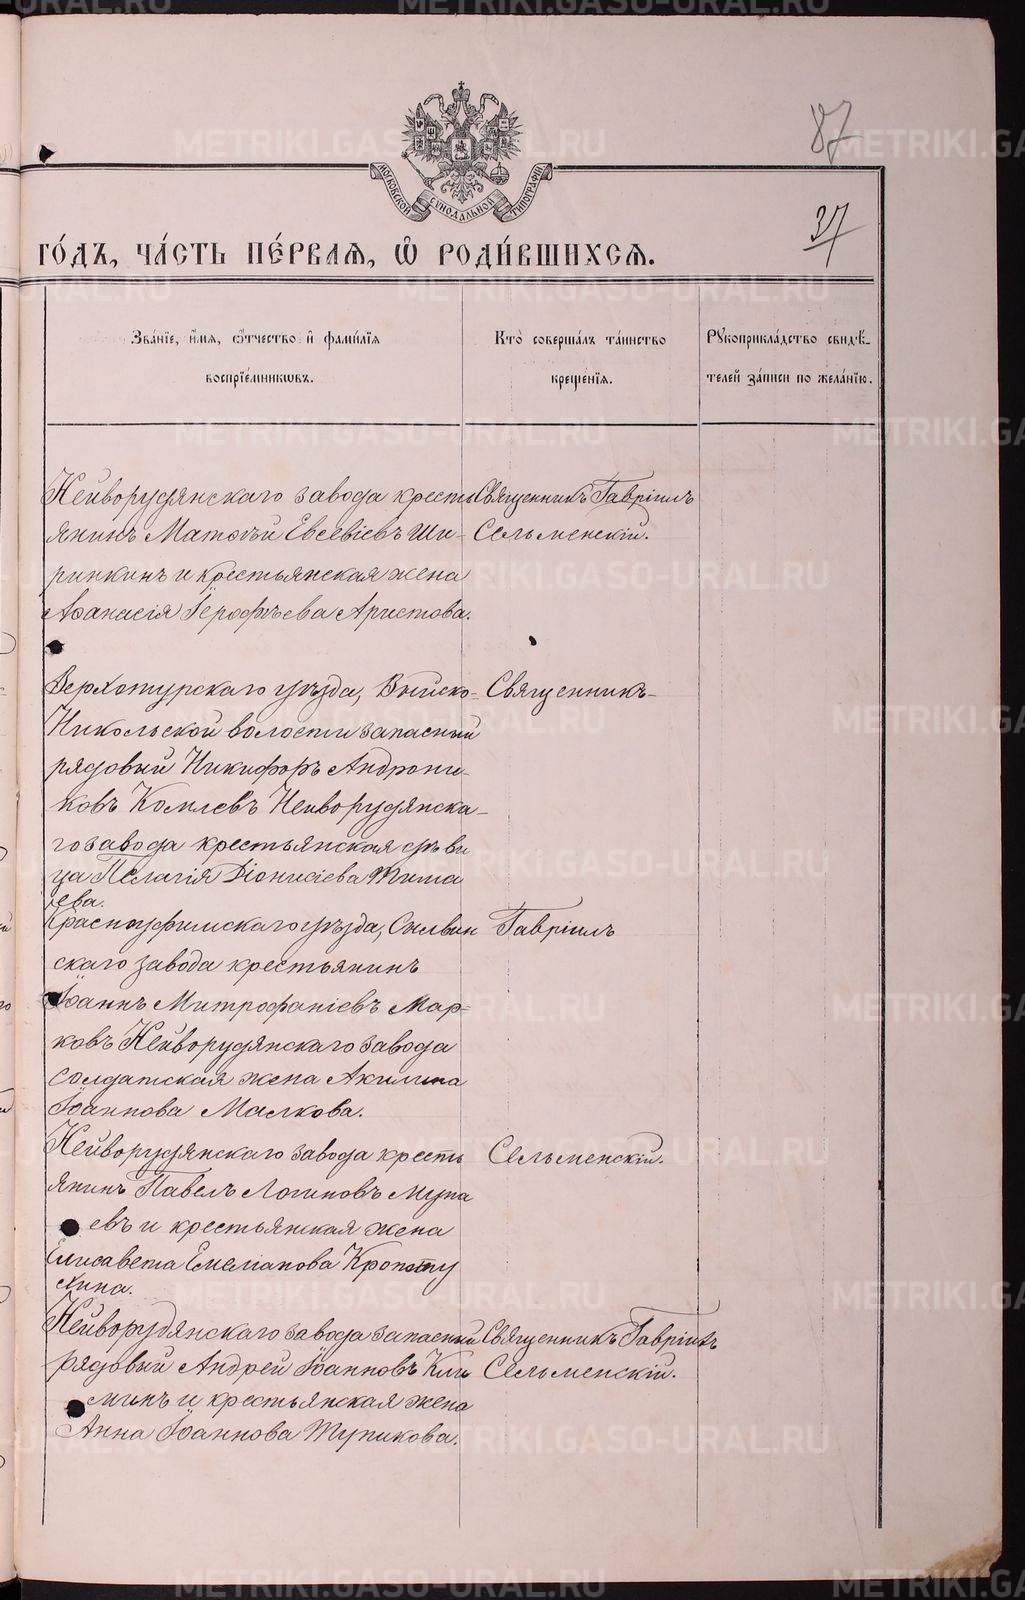 87
МОСКОВСКОЙ СѴНОДАЛЬНОЙ ТИПОГРАФІИ
37
ГО́ДЪ, ЧА́СТЬ ПЕ́РВАѦ, Ѽ РОДИ́ВШИХСѦ.
Зва́нїе, и҆́мѧ, ѻ҆́тчество и҆ фами́лїѧ
воспрїе́мникѡвъ.
Кто̀ соверша́лъ та́инство
креще́нїѧ.
Рꙋкоприкла́дство свидѣ́-
телей за́писи по жела́нїю.
Нейворудянскаго завода кресть
янинъ Матѳѣй Евсевіевъ Ши-
ринкинъ и крестьянская жена
Аѳанасія Іероѳѣева Аристова.
Священникъ Гавріилъ
Сельменскій.
Верхотурскаго уѣзда, Выйско-
Никольской волости запасный
рядовый Никифоръ Андрони-
ковъ Комлевъ Нейворудянска-
го завода крестьянская дѣви
ца Пелагія Діонисіева Шима
ева.
Священникъ
Красноуфимскаго уѣзда, Сылвин
скаго завода крестьянинъ
Іоаннъ Митрофаніевъ Мар-
ковъ Нейворудянскаго завода
солдатская жена Акилина
Іоаннова Малкова.
Гавріилъ
Нейворудянскаго завода кресть
янинъ Павелъ Логиновъ Мупа
евъ и крестьянская жена
Елисавета Емеліанова Кропоту
хина.
Сельменскій.
Нейворудянскаго завода запасный
рядовый Андрей Іоанновъ Кли
минъ и крестьянская жена
Анна Іоаннова Тупикова.
Священникъ Гавріилъ
Сельменскій.
METRIKI.GASO-URAL.RU